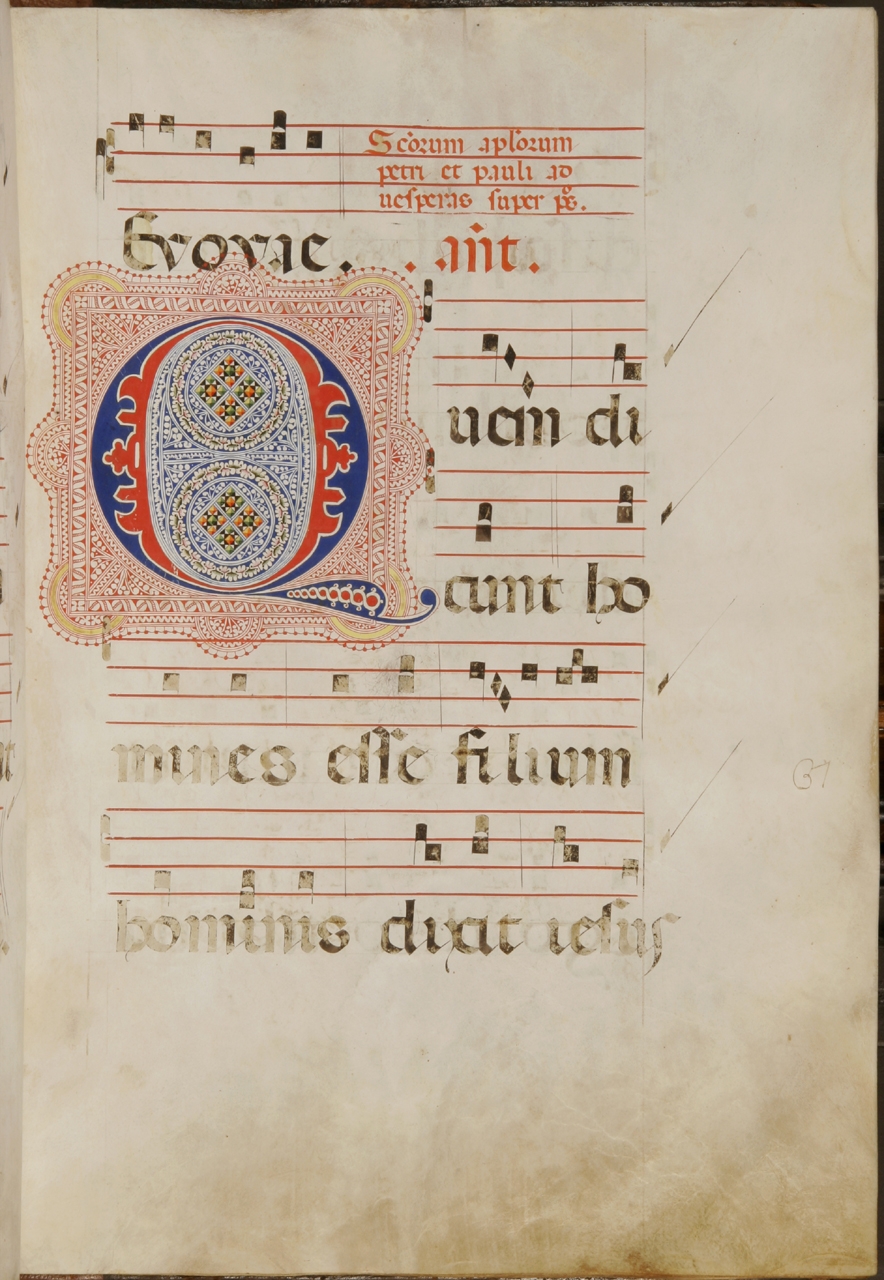 Scorum aplorum
petri et pauli ad
uesperas super ps.
Evovae. . ant.
Quem di
cunt ho
mines esse filium
hominis dixit iesus